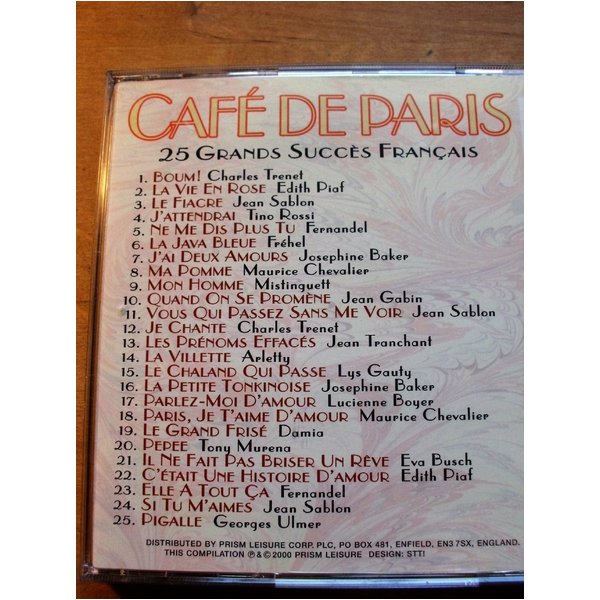 CAFÉ DE PARIS
25 GRANDS SUCCÈS FRANÇAIS
1. BOUM! Charles Trenet
2. LA VIE EN ROSE Edith Piaf
3. LE FIACRE Jean Sablon
4. J'ATTENDRAI Tino Rossi
5. NE ME DIS PLUS TU Fernandel
6. LA JAVA BLEUE Fréhel
7. J'AI DEUX AMOURS Josephine Baker
8. MA POMME Maurice Chevalier
9. MON HOMME Mistinguett
10. QUAND ON SE PROMÈNE Jean Gabin
11. VOUS QUI PASSEZ SANS ME VOIR Jean Sablon
12. JE CHANTE Charles Trenet
13. LES PRÉNOMS EFFACÉS Jean Tranchant
14. LA VILLETTE Arletty
15. LE CHALAND QUI PASSE Lys Gauty
16. LA PETITE TONKINOISE Josephine Baker
17. PARLEZ-MOI D'AMOUR Lucienne Boyer
18. PARIS, JE T'AIME D'AMOUR Maurice Chevalier
19. LE GRAND FRISÉ Damia
20. PEREE Tony Murena
21. IL NE FAIT PAS BRISER UN RÊVE Eva Busch
22. C'ÉTAIT UNE HISTOIRE D'AMOUR Edith Piaf
23. ELLE A TOUT ÇA Fernandel
24. SI TU M'AIMES Jean Sablon
25. PIGALLE Georges Ulmer
DISTRIBUTED BY PRISM LEISURE CORP. PLC, PO BOX 481, ENFIELD, EN3 7SX, ENGLAND.
THIS COMPILATION ℗ & © 2000 PRISM LEISURE DESIGN: STTI